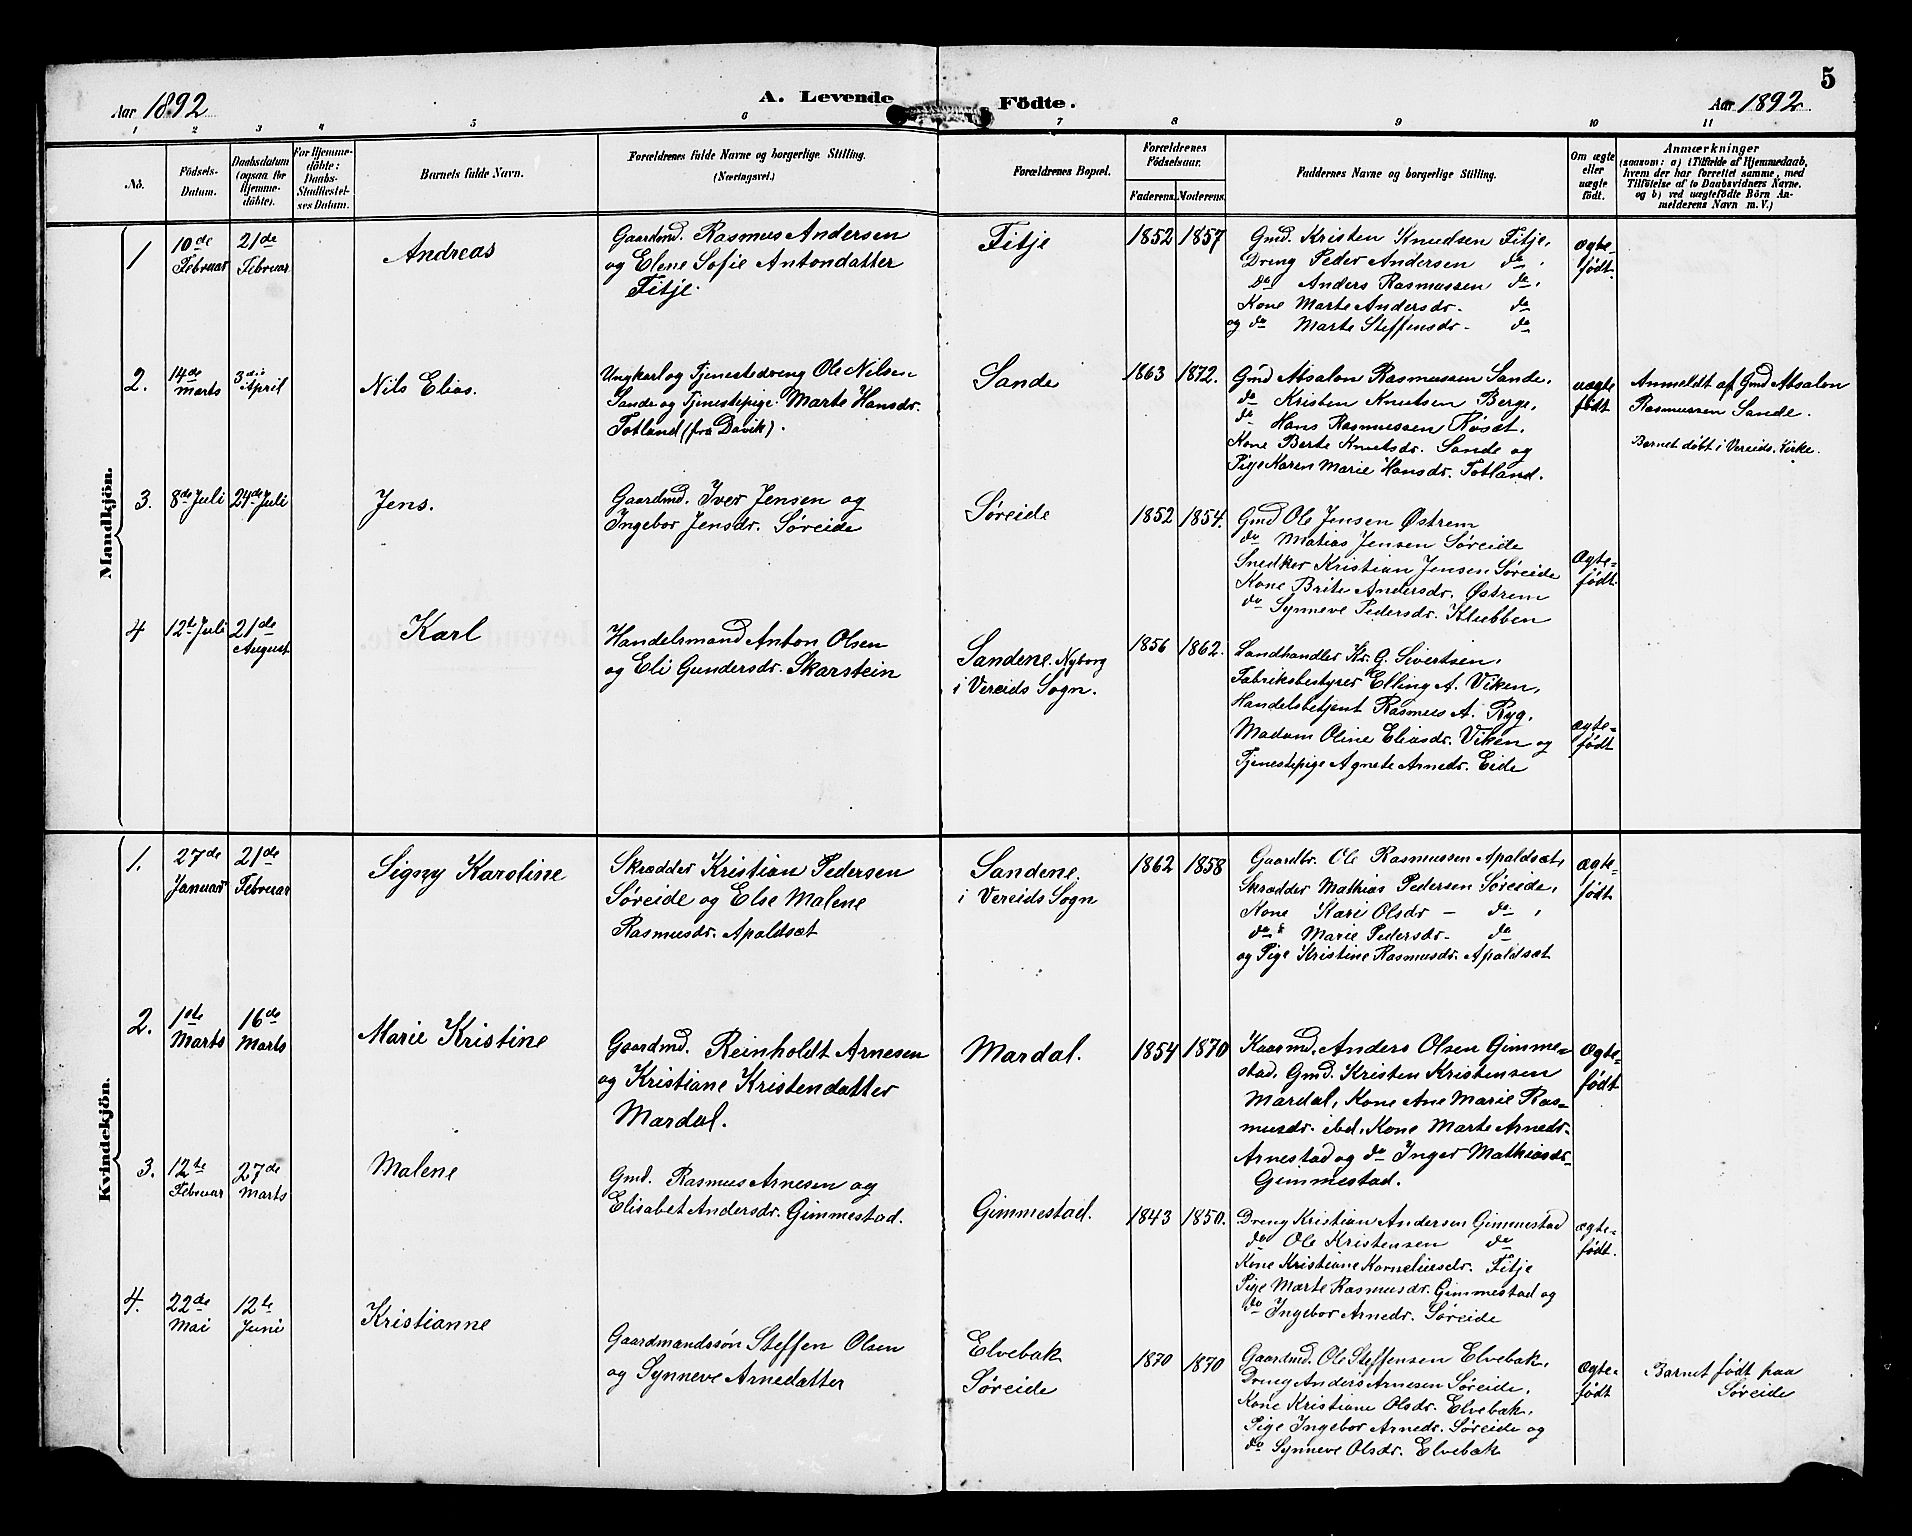 5
Aar 1892
A. Levende Födte.
Aar 1892
1 2 3 4 5 6 7 8 9 10 11
No.
Födsels-
Datum.
Daabsdatum
(ogsaa for
Hjemme-
döbte).
For Hjemme-
döbte:
Daabs-
Stadfæstel-
ses Datum.
Barnets fulde Navn.
Forældrenes fulde Navne og borgerlige Stilling.
(Næringsvei.)
Forældrenes Bopæl.
Forældrenes
Födselsaar.
Faderens.
Moderens.
Faddernes Navne og borgerlige Stilling.
Om ægte
eller
uægte
födt.
Anmærkninger
(saasom: a) i Tilfælde af Hjemmedaab,
hvem der har forrettet samme, med
Tilföielse af to Daabsvidners Navne.
og b) ved uægtefödte Börn An-
melderens Navn m. V.)
Mandkjön.
1
10de
Februar
21de
Februar
Andreas
Gaardmd. Rasmus Andersen
og Elene Sofie Antondatter
Fitje.
Fitje
1852
1857
Gmd. Kristen Knudsen Fitje,
Dreng Peder Andersen do,
Do Anders Rasmussen do,
Kone Marte Andersdr. do
og do Marte Steffensdr. do
ægte-
født.
2.
14de
Marts
3die
April
Nils Elias.
Ungkarl og Tjenestedreng Ole Nilsen
Sande og Tjenestepige Marte Hansdr.
Totland (fra Davik).
Sande
1863
1872.
Gmd Absalon Rasmussen Sande,
do Kristen Knutsen Berge,
do Hans Rasmussen Røset,
Kone Berte Knutsdr. Sande og
Pige Karen Marie Hansdr. Totland.
uægte
født
Anmeldt af Gmd Absalon
Rasmussen Sande.
Barnet døbt i Vereids Kirke.
3.
8de Juli
24de Juli
Jens.
Gaardmd. Iver Jensen og
Ingebor Jensdr. Søreide
Søreide
1852
1854.
Gmd Ole Jensen Østrem
do Matias Jensen Søreide
Snedker Kristian Jensen Søreide
Kone Brite Andersdr. Østrem
do Synneve Pedersdr. Klubben
Ægte-
født.
4
12te Juli
21de
August
Karl
Handelsmand Anton Olsen
og Eli Gundersdr. Skarstein
Sandene. Nyborg
i Vereids Sogn.
1856
1862.
Landhandler Kr. G. Sivertsen,
Fabriksbestyrer Elling A. Viken,
Handelsbetjent Rasmus A. Ryg,
Madam Oline Eliasdr. Viken og
Tjenestepige Agnete Arnedr. Eide
ægte-
født
Kvindekjön.
1.
27de
Januar
21de
Februar
Signy Karoline
Skrædder Kristian Pedersen
Søreide og Else Malene
Rasmusdr. Apaldsæt
Sandene.
i Vereids Sogn
1862
1858
Gaardbr. Ole Rasmussen Apaldsæt,
Skrædder Mathias Pedersen Søreide,
Kone Kari Olsdr – do,
do Marie Pedersdr. do
og Pige Kristine Rasmusdr. Apaldsæt
ægte-
født
2.
1ste
Marts
16de
Marts
Marie Kristine
Gaardmd. Reinholdt Arnesen
og Kristiane Kristendatter
Mardal.
Mardal.
1854
1870
Kaarmd. Anders Olsen Gimme-
stad, Gmd. Kristen Kristensen
Mardal, Kone Ane Marie Ras-
musdr. ibd, Kone Marte Arnedr.
Arnestad og do Inger Mathiasdr.
Gimmestad.
Ægte-
født
3.
12te
Februar
27de
Marts
Malene
Gmd. Rasmus Arnesen og
Elisabet Andersdr. Gimmestad.
Gimmestad.
1843
1850.
Dreng Kristian Andersen Gimmestad
do Ole Kristensen do
Kone Kristiane Korneliusdr. Fitje
Pige Marte Rasmusdr. Gimmestad og
do Ingebor Arnedr. Søreide
ægte-
født.
4.
22de
Mai
12te
Juni
Kristianne
Gaardmandssøn Steffen Olsen
og Synneve Arnedatter
Elvebak
Søreide
1870
1870
Gaardmd. Ole Steffensen Elvebak,
Dreng Anders Arnesen Søreide,
Kone Kristiane Olsdr. Elvebak,
Pige Ingebor Arnedr. Søreide og
do Synneve Olsdr. Elvebak
Ægte-
født
Barnet født paa
Søreide